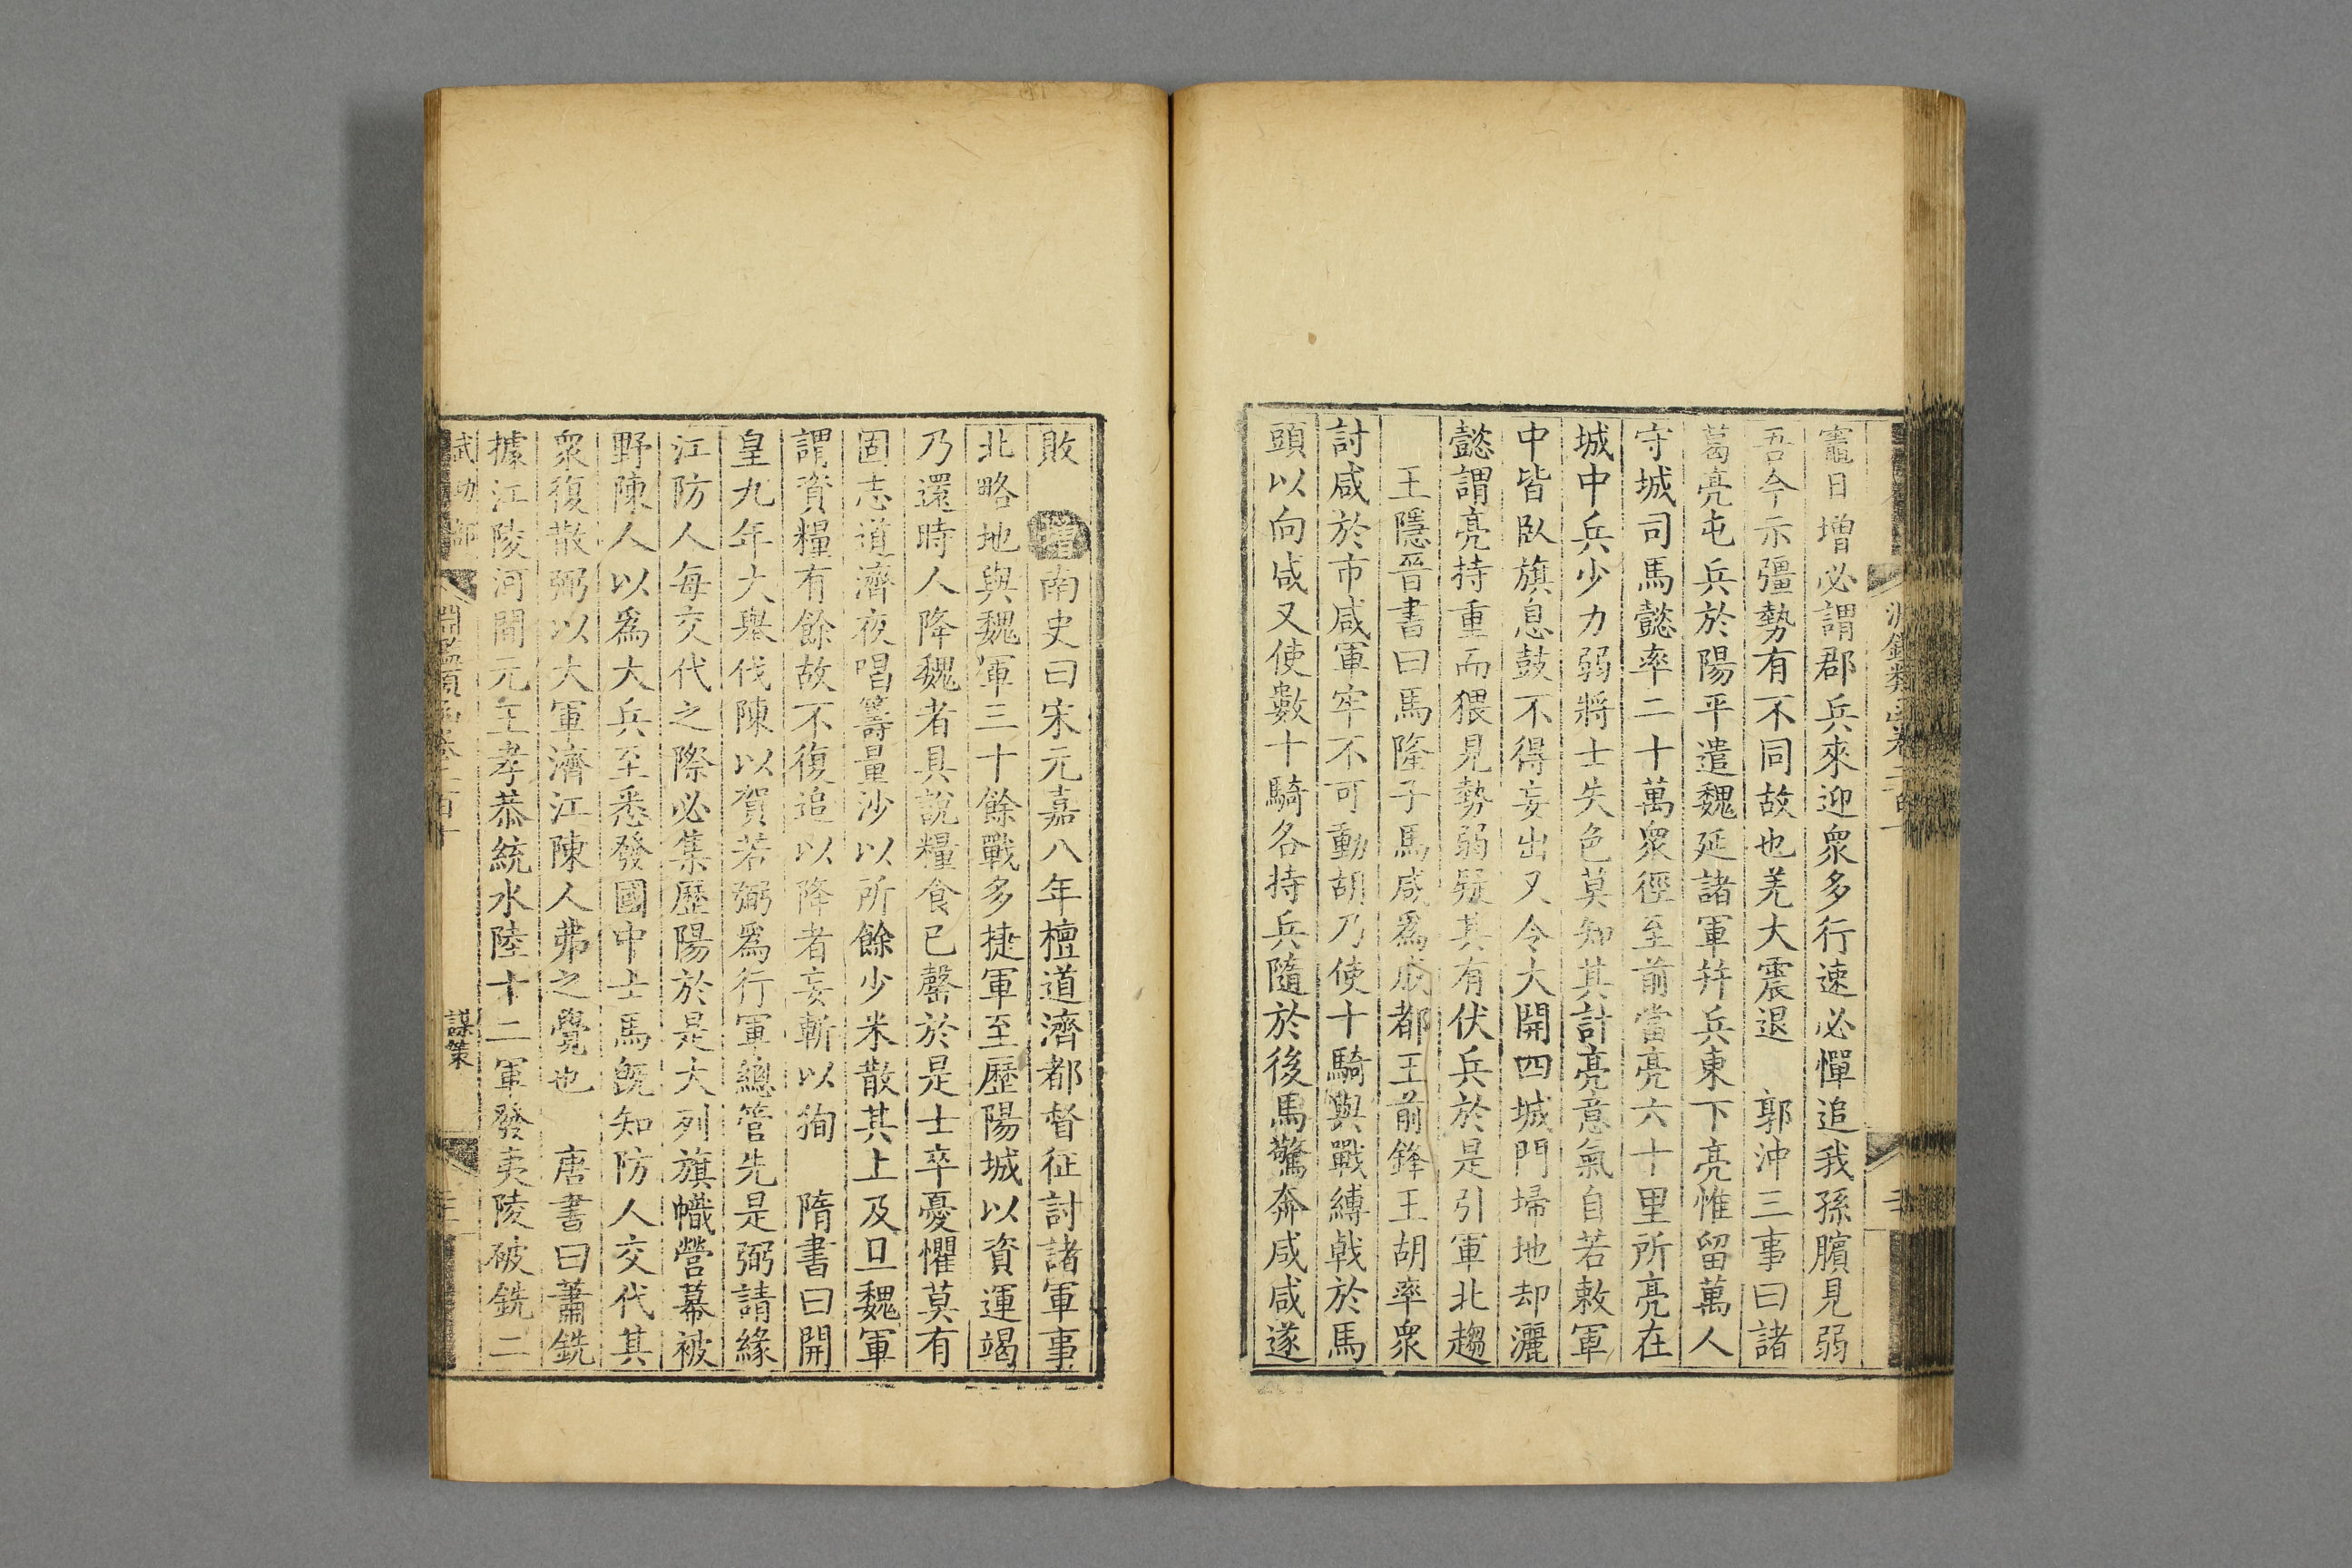 竈日增必謂郡兵來迎衆多行速必憚追我孫臏見弱
吾今示彊勢有不同故也羌大震退　郭沖三事曰諸
葛亮屯兵於陽平遣魏延諸軍并兵東下亮惟留萬人
守城司馬懿率二十萬衆徑至前當亮六十里所亮在
城中兵少力弱將士失色莫知其計亮意氣自若敕軍
中皆臥旗息鼓不得妄出又令大開四城門埽地却灑
懿謂亮持重而猥見勢弱疑其有伏兵於是引軍北趨
王隱晉書曰馬隆子馬咸爲成都王前鋒王胡率衆
討咸於市咸軍牢不可動胡乃使十騎與戰縛戟於馬
頭以向咸又使數十騎各持兵隨於後馬驚奔咸咸遂
敗　增南史曰宋元嘉八年檀道濟都督征討諸軍事
北略地與魏軍三十餘戰多捷軍至歷陽城以資運竭
乃還時人降魏者具說糧食已罄於是士卒憂懼莫有
固志道濟夜唱籌量沙以所餘少米散其上及旦魏軍
謂資糧有餘故不復追以降者妄斬以狥　隋書曰開
皇九年大舉伐陳以賀若弼爲行軍總管先是弼請緣
江防人每交代之際必集歷陽於是大列旗幟營幕被
野陳人以爲大兵至悉發國中士馬旣知防人交代其
衆復散弼以大軍濟江陳人弗之覺也　唐書曰蕭銑
據江陵河間元王孝恭統水陸十二軍發夷陵破銑二
武功部　淵鑑類函卷二百十　謀策